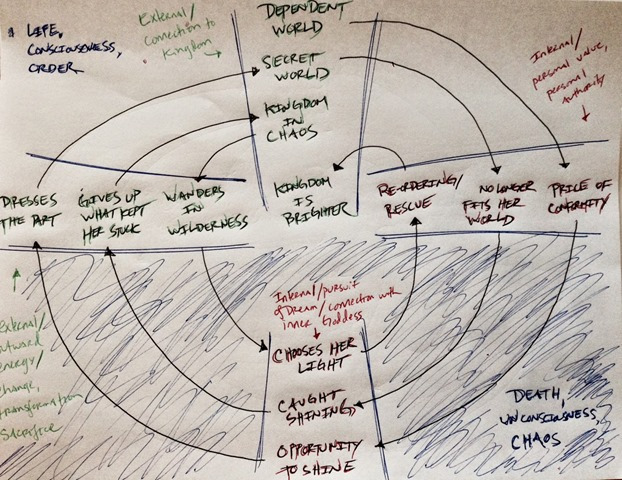 LIFE,
CONSCIOUSNESS,
ORDER
External/
connection to
Kingdom
DEPENDENT
WORLD
SECRET
WORLD
KINGDOM
IN
CHAOS
Internal/
personal value,
personal
Authority
DRESSES
THE PART
GIVES UP
WHAT KEPT
HER STUCK
WANDERS
IN
WILDERNESS
KINGDOM
IS
BRIGHTER
RE-ORDERING/
RESCUE
NO LONGER
FITS HER
WORLD
PRICE OF
CONFORMITY
External/
outward
energy/
change,
transformation
SACRIFICE
Internal/pursuit
of Dream/connection with
inner Goddess
CHOOSES HER
LIGHT
CAUGHT
SHINING
OPPORTUNITY
TO SHINE
DEATH,
UNCONSCIOUSNESS,
CHAOS